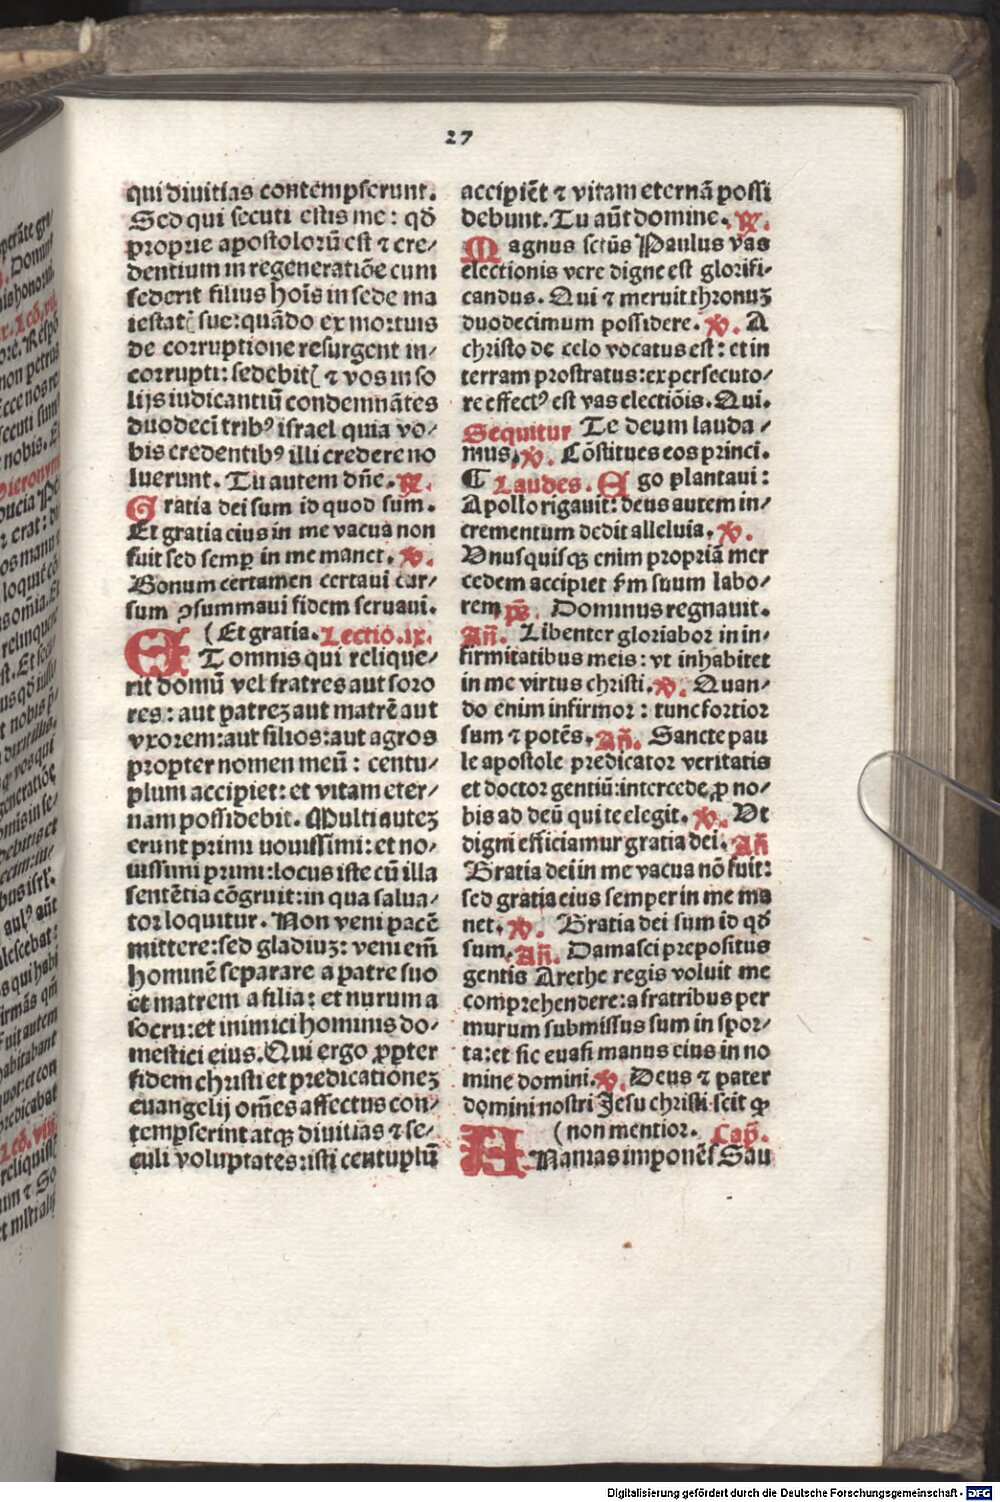 27
qui diuitias contempserunt.
Sed qui secuti estis me: qđ
proprie apostolorū est ⁊ cre/
dentium in regeneratiōe cum
sederit filius hoīs in sede ma
iestatꝭ sue: quādo ex mortuis
de corruptione resurgent in/
corrupti: sedebitꝭ ⁊ vos in so
lijs iudicantiū condemnātes
duodecī tribꝰ israel quia vo/
bis credentibꝰ illi credere no
luerunt. Tu autem dn̄e. ℟.
Gratia dei sum id quod sum.
Et gratia eius in me vacua non
fuit sed semꝑ in me manet. ℣.
Bonum certamen certaui cur/
sum ꝯsummaui fidem seruaui.
(Et gratia. Lectio.ix.
ET omnis qui relique/
rit domū vel fratres aut soro
res: aut patreꝫ aut matrē aut
vxorem: aut filios: aut agros
propter nomen meū: centu/
plum accipiet: et vitam eter/
nam possidebit. Multi auteꝫ
erunt primi nouissimi: et no/
uissimi primi: locus iste cū illa
sentētia cōgruit: in qua salua/
tor loquitur. Non veni pacē
mittere: sed gladiuꝫ: veni eīm
hominē separare a patre suo
et matrem a filia: et nurum a
socru: et inimici hominis do/
mestici eius. Qui ergo ꝓpter
fidem christi et predicationeꝫ
euangelij om̄es affectus con/
tempserint atqꝫ diuitias ⁊ se/
culi voluptates: isti centuplū
accipiēt ⁊ vitam eternā possi
debunt. Tu aūt domine. ℟.
Magnus sctūs Paulus vas
electionis vere digne est glorifi/
candus. Qui ⁊ meruit thronuꝫ
duodecimum possidere. ℣. A
christo de celo vocatus est: et in
terram prostratus: ex persecuto/
re effectꝰ est vas electiōis. Qui.
Sequitur Te deum lauda/
mus. ℣. Cōstitues eos princi.
¶ Laudes. Ego plantaui:
Apollo rigauit: deus autem in/
crementum dedit alleluia. ℣.
Vnusquisqꝫ enim propriā mer
cedem accipiet ẜm suum labo/
rem ps̄. Dominus regnauit.
Añ. Libenter gloriabor in in/
firmitatibus meis: vt inhabitet
in me virtus christi. ℣. Quan/
do enim infirmor: tunc fortior
sum ⁊ potēs. Añ. Sancte pau
le apostole predicator veritatis
et doctor gentiū: intercede ꝓ no/
bis ad deū qui te elegit. ℣. Vt
digni efficiamur gratia dei. Añ
Gratia dei in me vacua nō fuit:
sed gratia eius semper in me ma
net. ℣. Gratia dei sum id qđ
sum. Añ. Damasci prepositus
gentis Arethe regis voluit me
comprehendere: a fratribus per
murum submissus sum in spor/
ta: et sic euasi manus eius in no
mine domini. ℣. Deus ⁊ pater
domini nostri Jesu christi scit ꝙ
(non mentior. Cap̄.
ANanias imponēs Sau
Digitalisierung gefördert durch die Deutsche Forschungsgemeinschaft - DFG